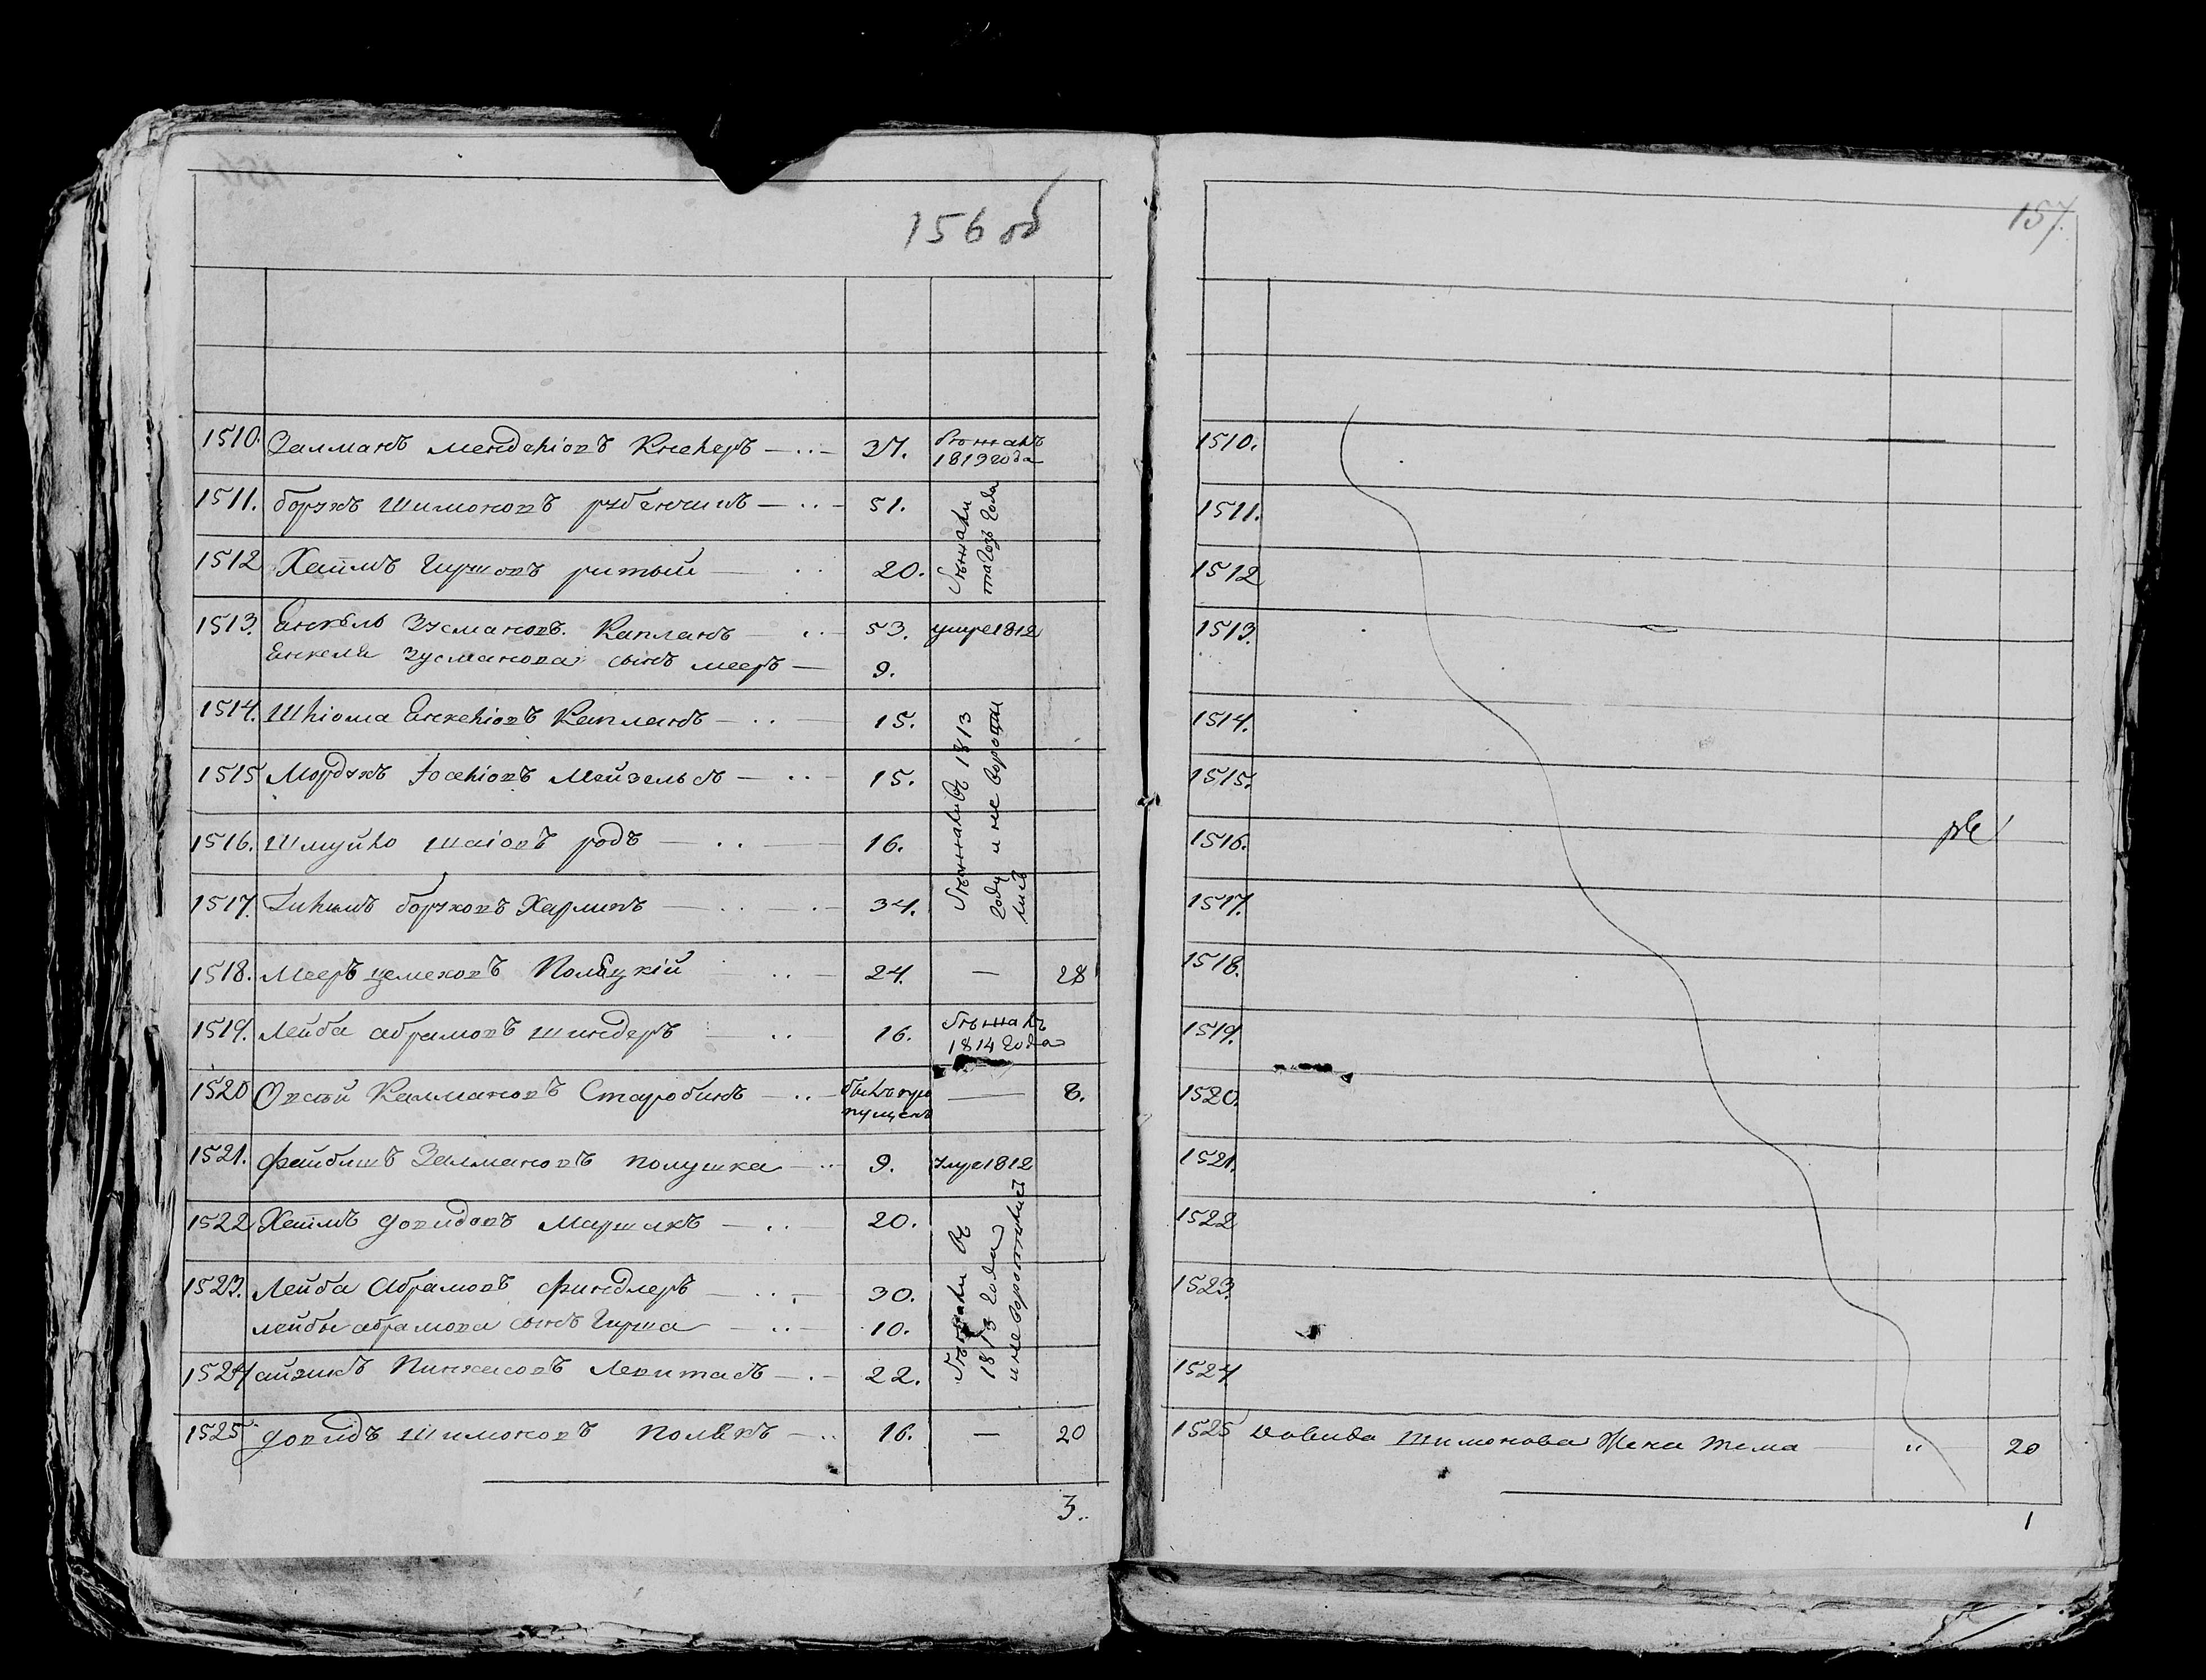 156 об
1510. Залманъ Менделіовъ Кнелеръ — 37. бѣжалъ 1813 года
1511. Борухъ Шимоновъ Рубенчикъ — 51. бѣжали
1512 Хаимъ Гиршовъ — 20. тагожъ года
1513. Енкель Зусмановъ. Капланъ — 53. умре 1812
Енкеля Зусманова сынъ Мееръ — 9.
1514. Шліома Енкеліовъ Капланъ — 15. бѣжали въ 1813
1515 Мордухъ Іоселіовъ Мейзельсъ — 15. году и не воротились
1516. Шмуйло Шаіовъ родъ — 16.
1517. Боруховъ — 34.
1518. Мееръ Поляцкій — 24. — 28
1519. Лейба Абрамовъ Шиндеръ — 16. бѣжалъ 1814 года
1520 Овсѣй Калмановъ Старобинъ — былъ пропущенъ — 8.
1521. Файбишъ Залмановъ Полушка — 9. умре 1812
1522 Хаимъ Довидовъ Маршакъ — 20. бѣжали въ
1523. Лейба Абрамовъ Финдлеръ — 30. 1813 года
Лейбы Абрамова сынъ Гирша — 10. и не воротились
1524 Айзикъ Пинхасовъ Левитасъ — 22.
1525 Довидъ Шимоновъ Полякъ — 16. — 20
3.
157.
1510.
1511.
1512
1513.
1514.
1515.
1516.
1517.
1518.
1519.
1520.
1521.
1522
1523.
1524.
1525 Давида Шимонова жена Тема — " 20
1